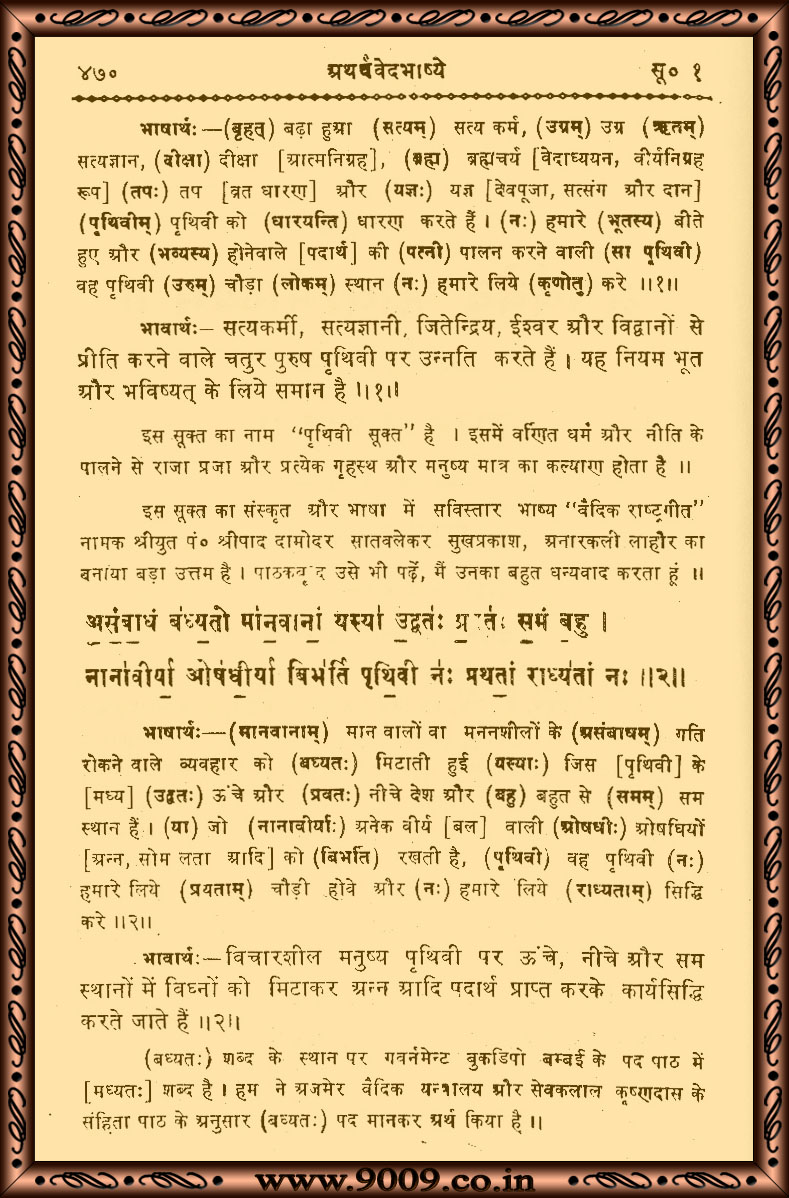 ४७० अथर्ववेदभाष्ये सू० १
भाषार्थः—(बृहत्) बढ़ा हुआ (सत्यम्) सत्य कर्म, (उग्रम्) उग्र (ऋतम्)
सत्यज्ञान, (दीक्षा) दीक्षा [आत्मनिग्रह], (ब्रह्म) ब्रह्मचर्य [वेदाध्ययन, वीर्यनिग्रह
रूप] (तपः) तप [व्रत धारण] और (यज्ञः) यज्ञ [देवपूजा, सत्संग और दान]
(पृथिवीम्) पृथिवी को (धारयन्ति) धारण करते हैं। (नः) हमारे (भूतस्य) बीते
हुए और (भव्यस्य) होनेवाले [पदार्थ] की (पत्नी) पालन करने वाली (सा पृथिवी)
वह पृथिवी (उरुम्) चौड़ा (लोकम्) स्थान (नः) हमारे लिये (कृणोतु) करे ॥१॥
भावार्थः—सत्यकर्मी, सत्यज्ञानी, जितेन्द्रिय, ईश्वर और विद्वानों से
प्रीति करने वाले चतुर पुरुष पृथिवी पर उन्नति करते हैं। यह नियम भूत
और भविष्यत् के लिये समान है ॥१॥
इस सूक्त का नाम “पृथिवी सूक्त” है । इसमें वर्णित धर्म और नीति के
पालने से राजा प्रजा और प्रत्येक गृहस्थ और मनुष्य मात्र का कल्याण होता है ॥
इस सूक्त का संस्कृत और भाषा में सविस्तार भाष्य “वैदिक राष्ट्रगीत”
नामक श्रीयुत पं० श्रीपाद दामोदर सातवलेकर सुखप्रकाश, अनारकली लाहौर का
बनाया बड़ा उत्तम है। पाठकवृंद उसे भी पढ़ें, मैं उनका बहुत धन्यवाद करता हूं ॥
अ॒सं॒बा॒धं ब॑ध्य॒तो मा॑न॒वानां॒ यस्या॑ उ॒द्वतः॑ प्र॒वतः॑ स॒मं ब॒हु ।
नाना॑वीर्या॒ ओष॑धी॒र्या बिभ॑र्ति पृथि॒वी नः॑ प्रथतां॒ राध्य॑तां नः ॥२॥
भाषार्थः—(मानवानाम्) मान वालों वा मननशीलों के (असंबाधम्) गति
रोकने वाले व्यवहार को (बध्यतः) मिटाती हुई (यस्याः) जिस [पृथिवी] के
[मध्य] (उद्वतः) ऊंचे और (प्रवतः) नीचे देश और (बहु) बहुत से (समम्) सम
स्थान हैं। (या) जो (नानावीर्याः) अनेक वीर्य [बल] वाली (ओषधीः) ओषधियों
[अन्न, सोम लता आदि] को (बिभर्ति) रखती है, (पृथिवी) वह पृथिवी (नः)
हमारे लिये (प्रथताम्) चौड़ी होवे और (नः) हमारे लिये (राध्यताम्) सिद्धि
करे ॥२॥
भावार्थः—विचारशील मनुष्य पृथिवी पर ऊंचे, नीचे और सम
स्थानों में विघ्नों को मिटाकर अन्न आदि पदार्थ प्राप्त करके कार्यसिद्धि
करते जाते हैं ॥२॥
(बध्यतः) शब्द के स्थान पर गवर्नमेन्ट बुकडिपो बम्बई के पद पाठ में
[मध्यतः] शब्द है। हम ने अजमेर वैदिक यन्त्रालय और सेवकलाल कृष्णदास के
संहिता पाठ के अनुसार (बध्यतः) पद मानकर अर्थ किया है ॥
www.9009.co.in